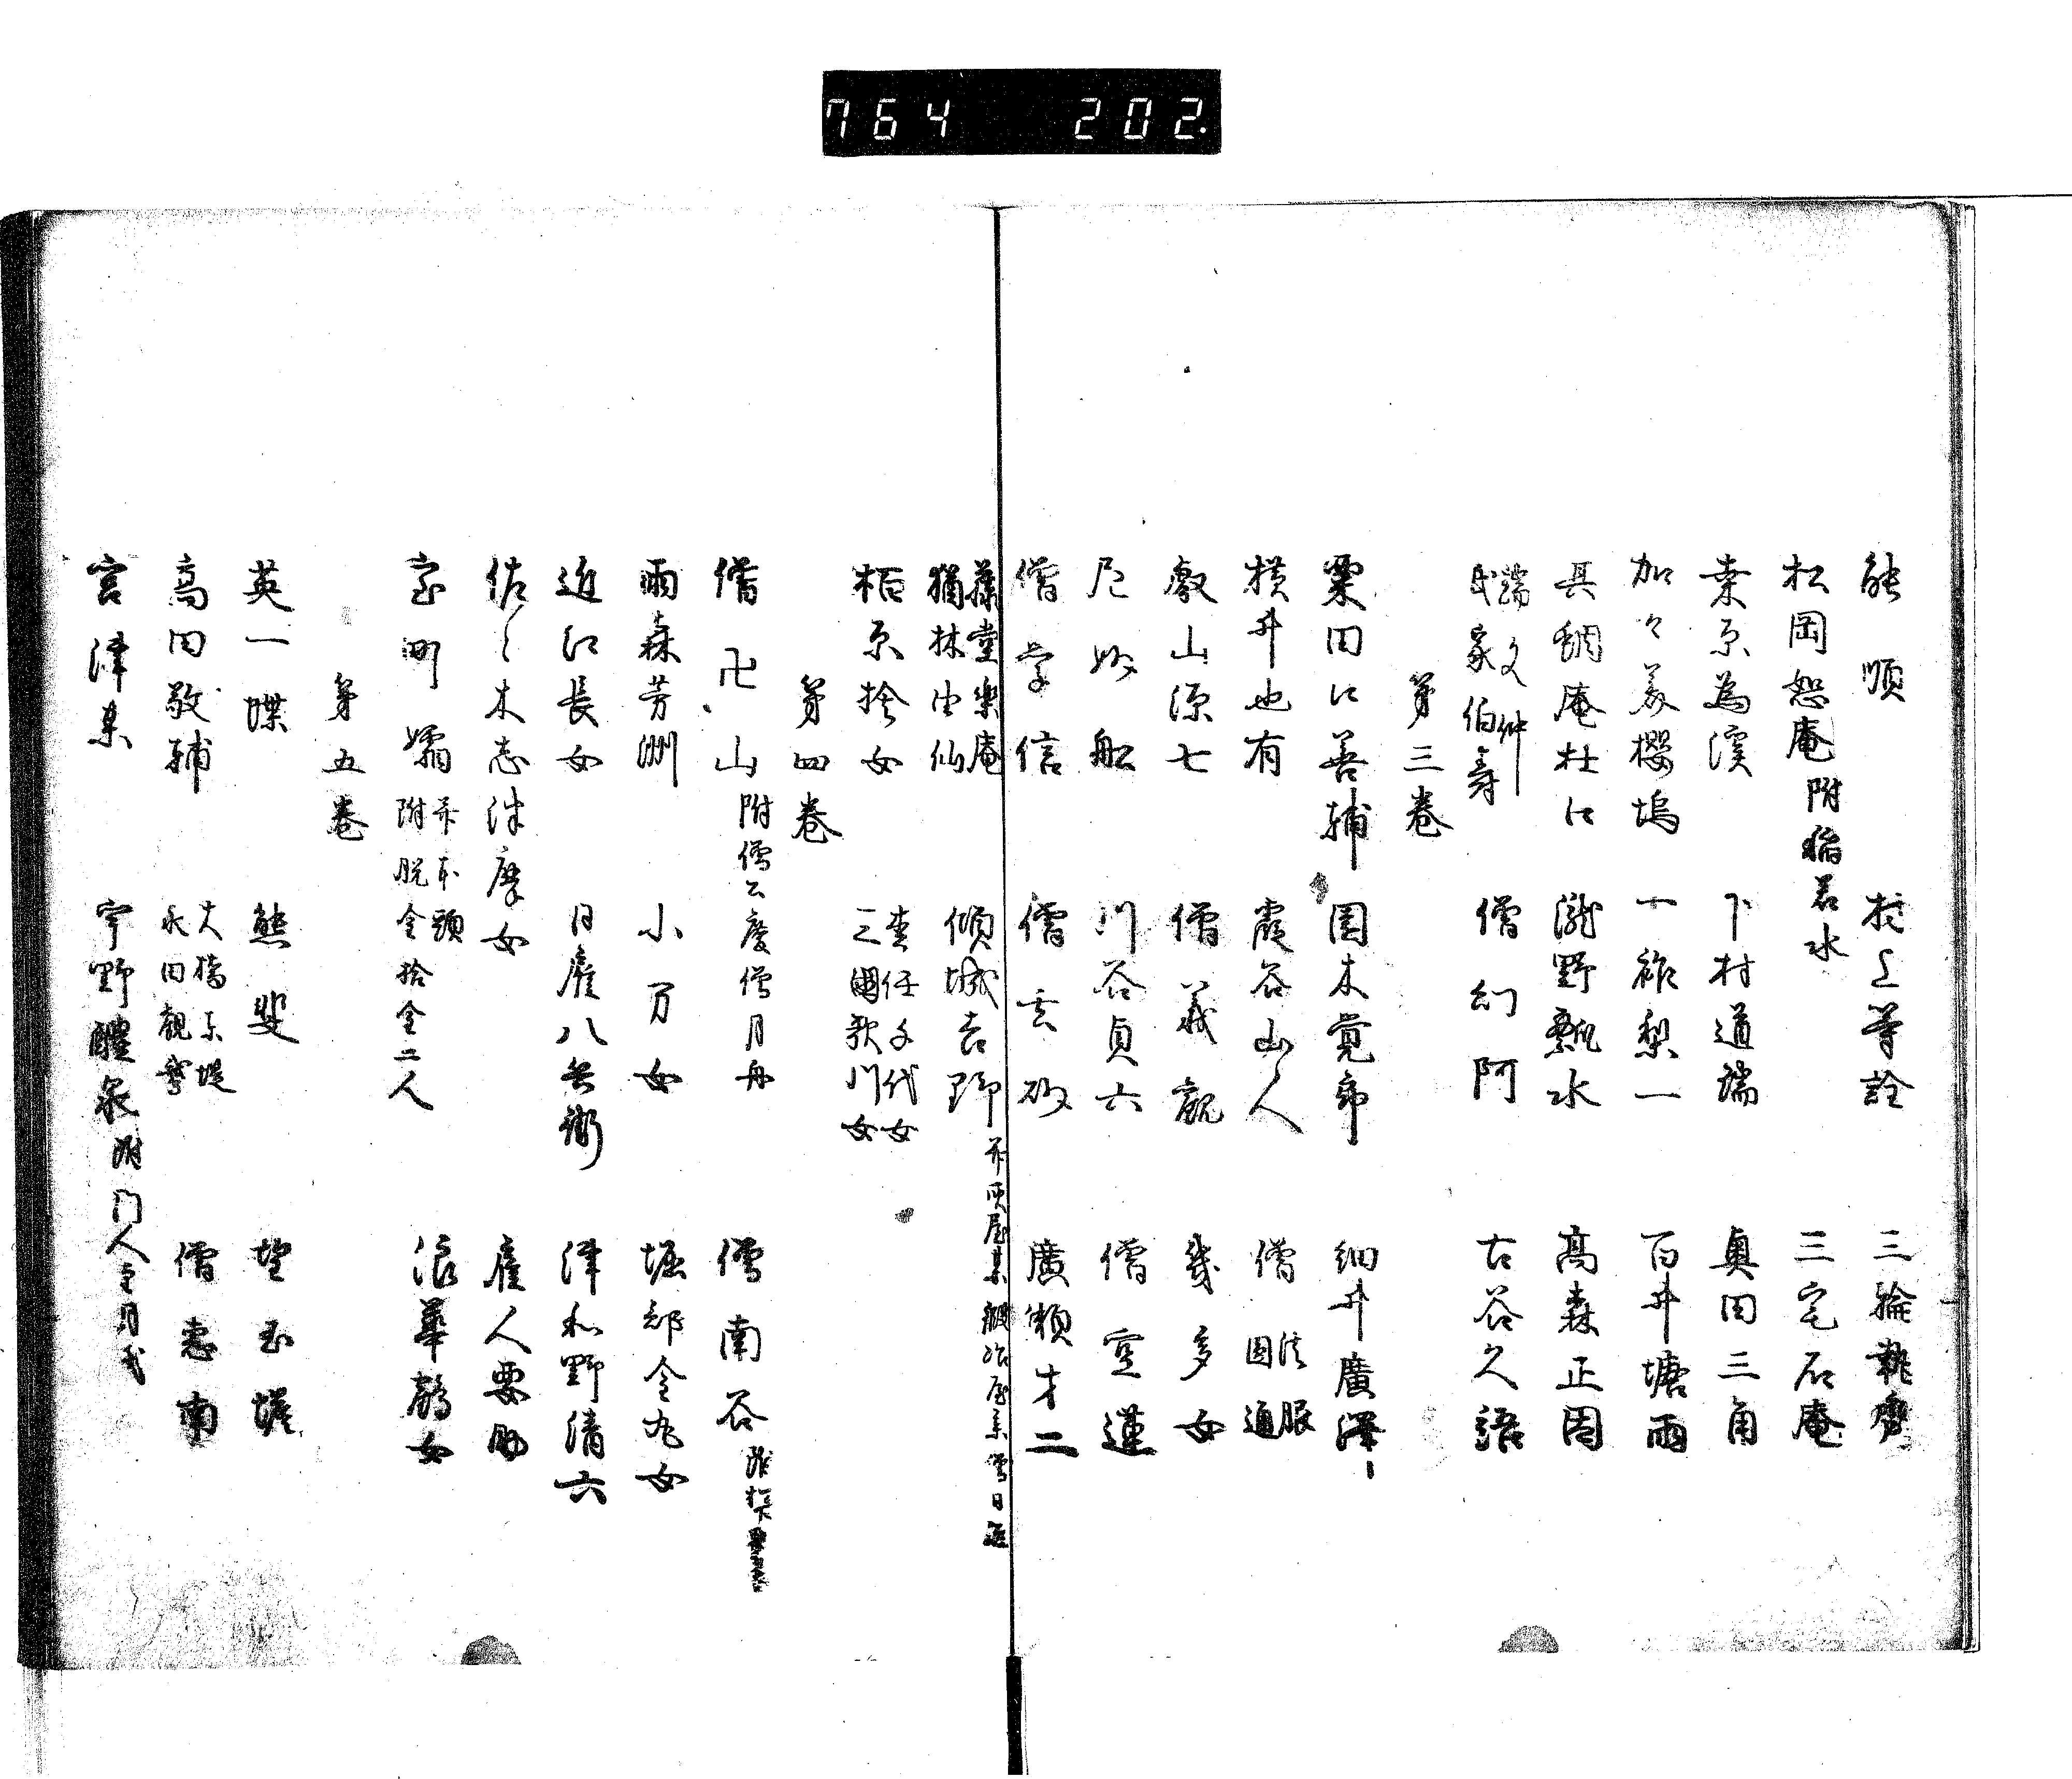 764 202.
能順 村上等詮 三輪執齋
松岡恕庵 附稲若水 三宅石庵
桒原為溪 下村道瑞 奥田三角
加々美櫻塢 一祚梨一 百井塘雨
具鯛庵杜口 瀧野瓢水 高森正因
端文仲
氏家伯壽 僧幻阿 古谷久語
第三巻
粟田口善輔 園木覚郎 細井廣澤
横井也有 霞谷山人 僧 法眼 固通
叡山源七 僧義観 幾多女
尼妙船 川谷貞六 僧空蓮
僧学信 僧玄砂 廣瀬才二
藤堂楽庵
猶林由仙 傾城吉野
栢原捨女 三國歌川女
第四巻
僧卍山 附僧公慶僧月舟 僧南谷
雨森芳洲 小万女 堀部金丸女
近江長女 日雇八兵衛 津和野清六
佐々木志津摩女 雇人要助
室町嬬 附脱金拾金二人 浪華鶴女
第五巻
英一蝶 熊斐 望玉蟾
高田敬輔 大橋東堤 永田観鵞 僧恵南
宮津某 宇野醴泉 附門人